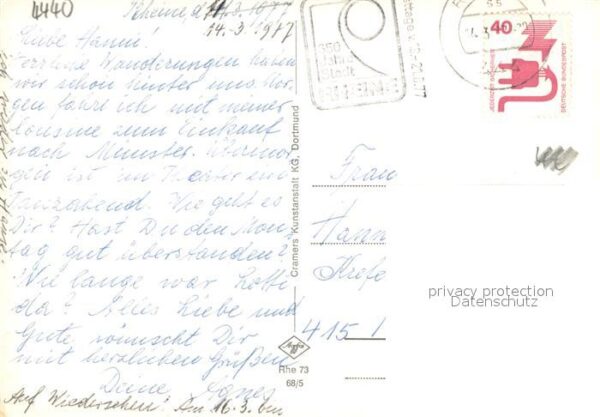 4440
Rheine d. 14.3.1977
14.3.1977
Liebe Hanni!
Wanderungen haben
wir schon hinter uns. Mor-
gen fahre ich mit meiner
Cousine zum Einkauf
nach Münster. Übermor-
gen ist im Theater ein
Tanzabend. Wie geht es
Dir? Hast Du den Mon-
tag gut überstanden?
Wie lange war Lotti
da? Alles Liebe und
Gute wünscht Dir
mit herzlichen Grüßen
Deine Agnes
Auf Wiedersehen! Am 16.3. bin
ich wieder zu Hause.
Cramers Kunstanstalt KG, Dortmund
Rhe 73
68/5
650
Jahre
Stadt
RHEINE
40
JEDERZEIT
DEUTSCHE BUNDESPOST
Frau
Hann
Krefe
415 1
privacy protection
Datenschutz